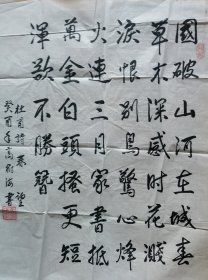 國破山河在城春
草木深感时花濺
淚恨别鸟驚心烽
火連三月家書抵
萬金白頭搔更短
渾欲不勝簪
杜甫詩春望
癸酉年高海書